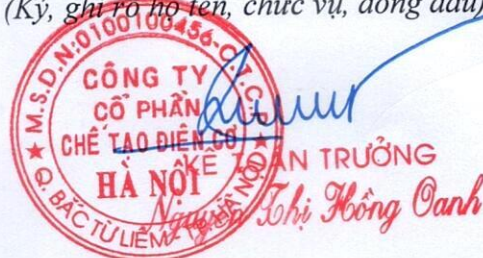 (Ký, ghi rõ họ tên, chức vụ, đóng dấu)
M.S.D.N:0100100456-C.T.C.P
CÔNG TY
CỔ PHẦN
CHẾ TẠO ĐIỆN CƠ
HÀ NỘI
Q. BẮC TỪ LIÊM - TP. HÀ NỘI
KẾ TOÁN TRƯỞNG
Nguyễn Thị Hồng Oanh